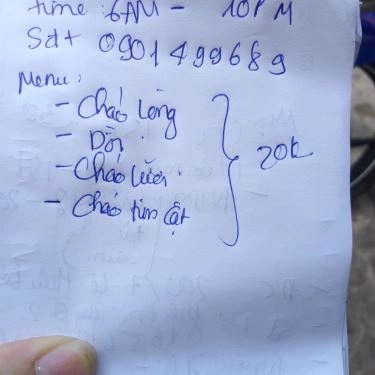 time: 6AM - 10PM
Sdt 0901499689
Menu:
- Cháo lòng
- Dồi
- Cháo lưỡi
- Cháo tim cật
20k